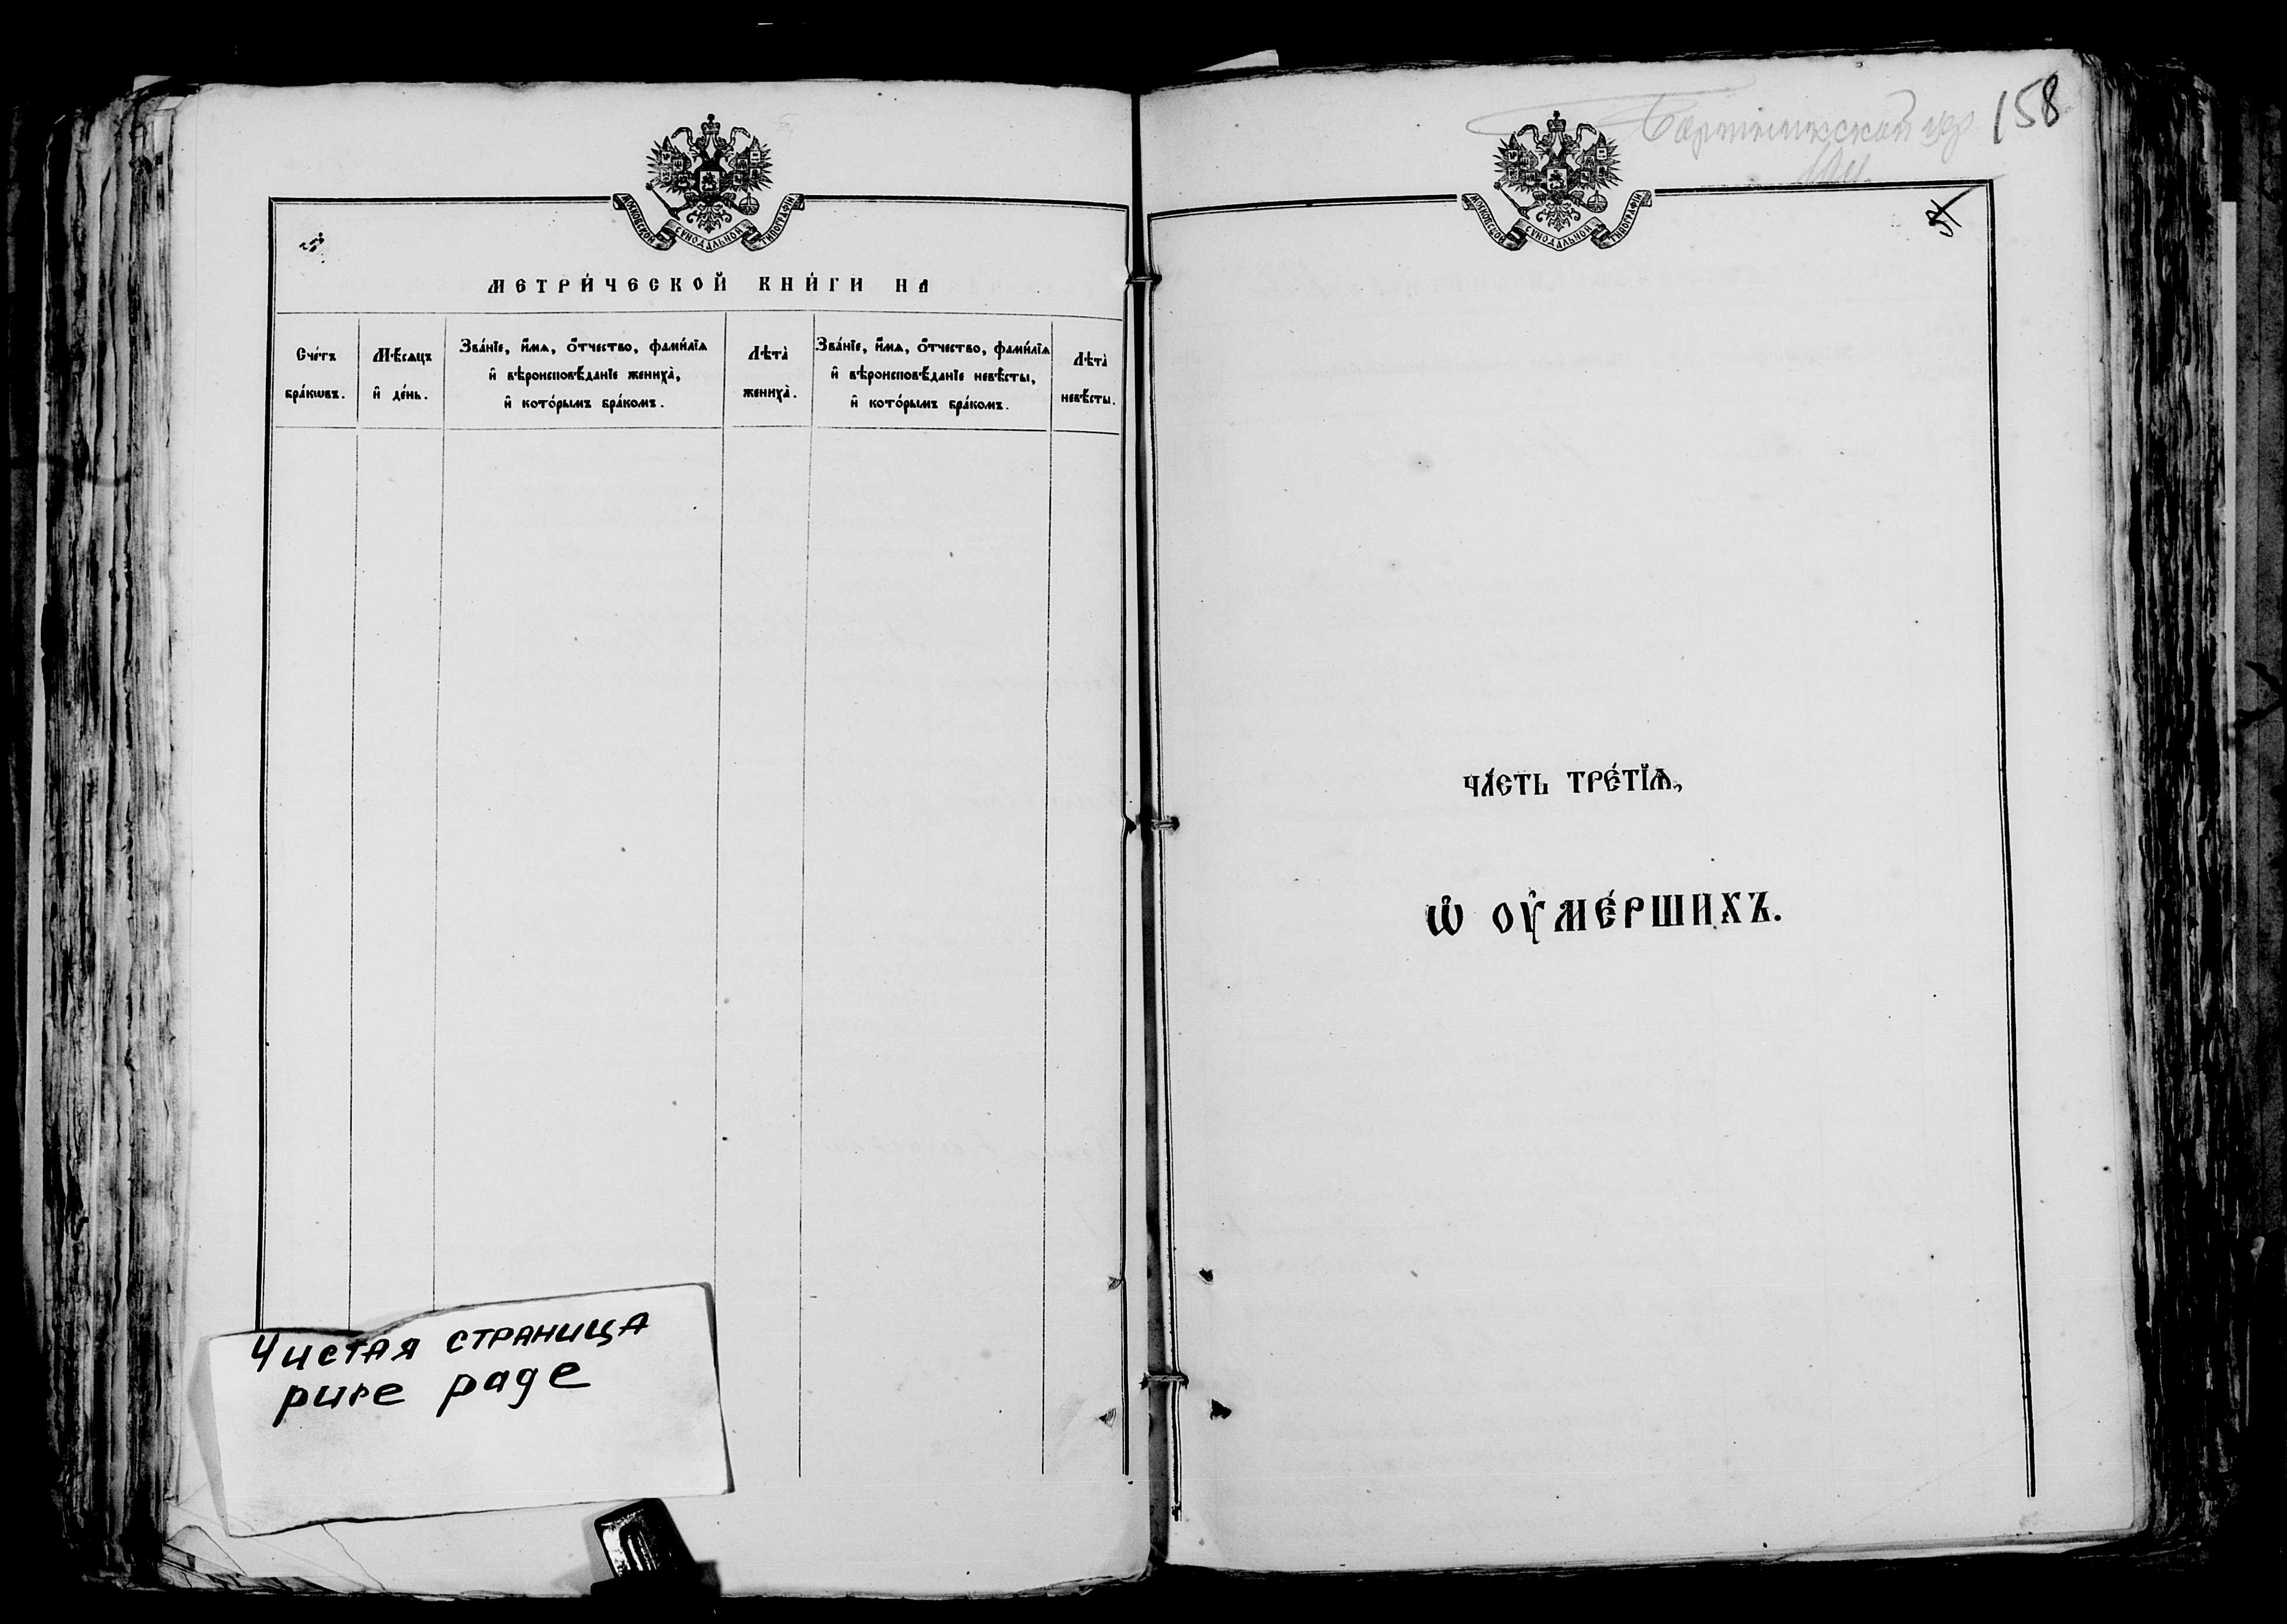 МОСКОВСКОЙ СѴНОДАЛЬНОЙ ТИПОГРАФІИ
МЕТРИ́ЧЕСКОЙ КНИ́ГИ НА
Сче́тъ
бра́кѡвъ.
Мѣ́сѧцъ
и҆ де́нь.
Зва́нїе, и҆́мѧ, ѻ҆́тчество, фами́лїѧ
и҆ вѣроисповѣ́данїе жениха̀,
и҆ кото́рымъ бра́комъ.
Лѣта̀
жениха̀.
Зва́нїе, и҆́мѧ, ѻ҆́тчество, фами́лїѧ
и҆ вѣроисповѣ́данїе невѣ́сты,
и҆ кото́рымъ бра́комъ.
Лѣта̀
невѣ́сты.
Чистая страница
pure page
158
МОСКОВСКОЙ СѴНОДАЛЬНОЙ ТИПОГРАФІИ
ЧА́СТЬ ТРЕ́ТЇѦ,
Ѡ҆ ОУ҆МЕ́РШИХЪ.